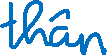 thân